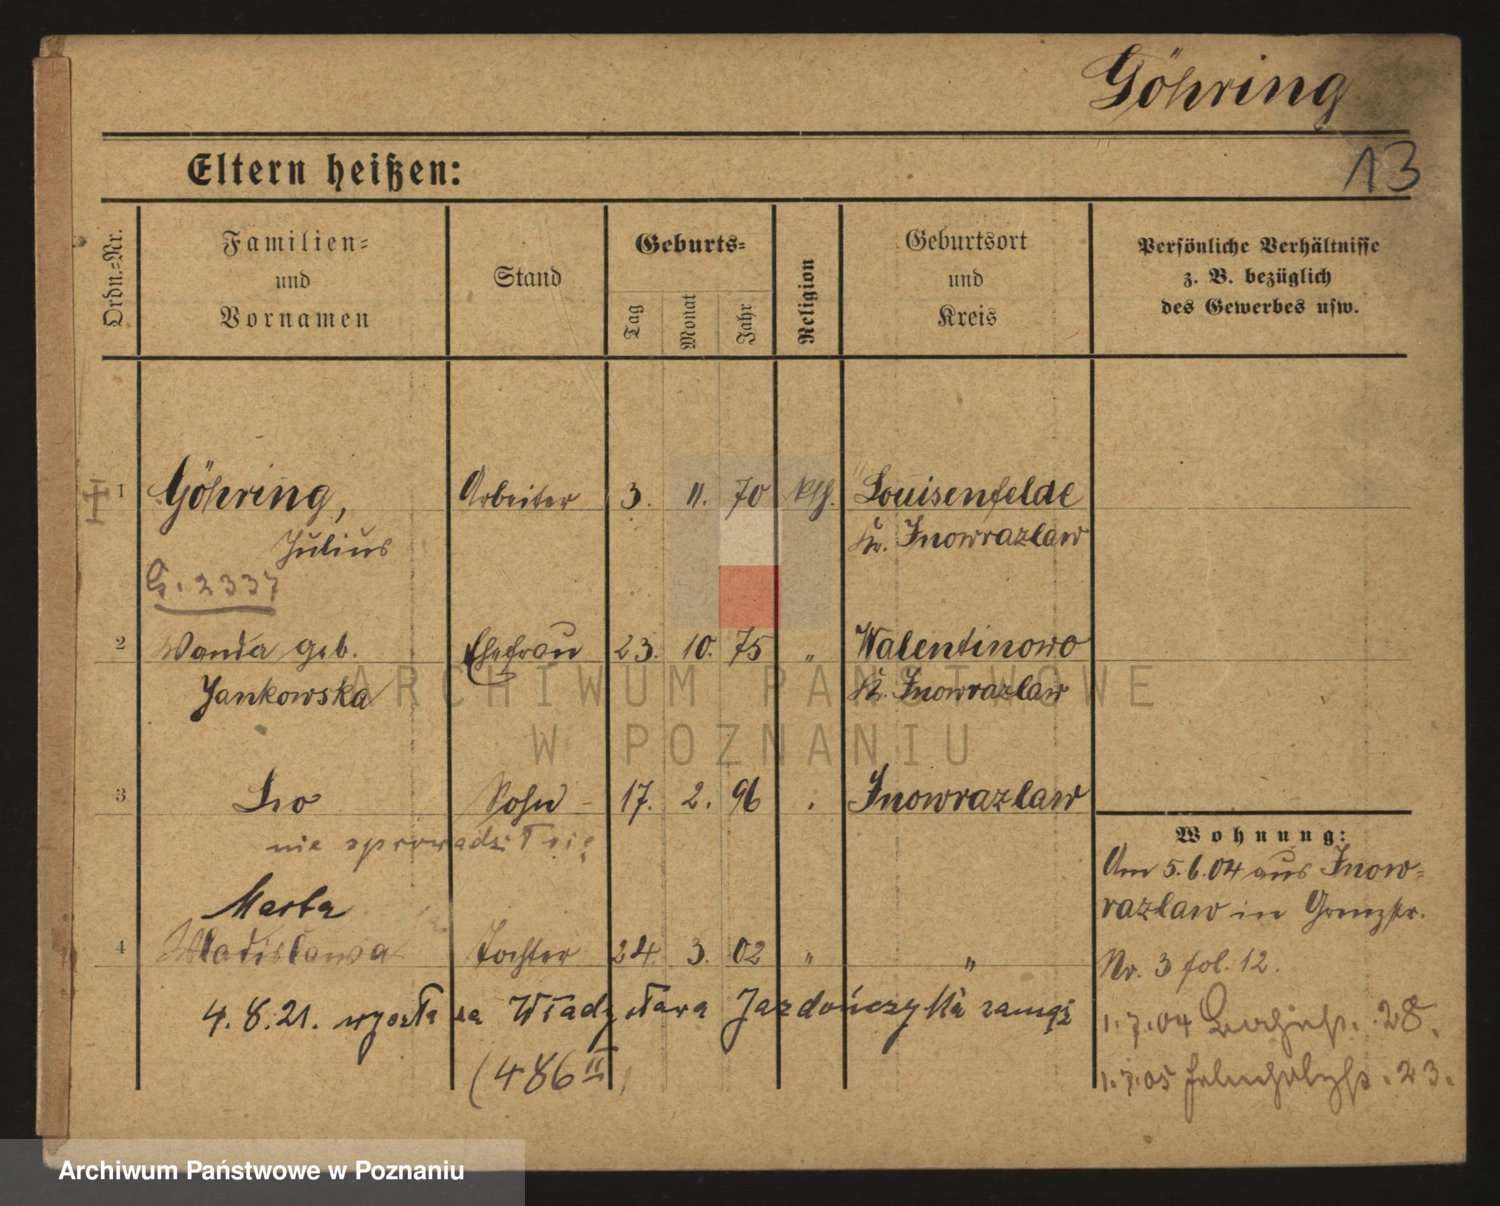 Göhring
13
Eltern heißen:
Ordn.=Nr.
Familien=
und
Vornamen
Stand
Geburts=
Tag
Monat
Jahr
Religion
Geburtsort
und
Kreis
Persönliche Verhältnisse
z. B. bezüglich
des Gewerbes usw.
1 Göhring, Arbeiter 3. 11. 70 kth. Louisenfelde
Julius Kr. Inowrazlaw
G. 2337
2 Wanda geb. Ehefrau 23. 10. 75 " Walentinowo
Jankowska Kr. Inowrazlaw
3 Leo Sohn 17. 2. 96 " Inowrazlaw
nie sprowadził się
Marta
4 Wladislawa Tochter 24 3. 02 " "
4. 8. 21. wyszła za Władysława Jazdończyka zamąż
(486 II)
Wohnung:
Am 5.6.04 aus Inow=
razlaw in Grenzstr.
Nr. 3 fol. 12.
1.7.04 28.
1.7.05 23.
ARCHIWUM PAŃSTWOWE
W POZNANIU
Archiwum Państwowe w Poznaniu